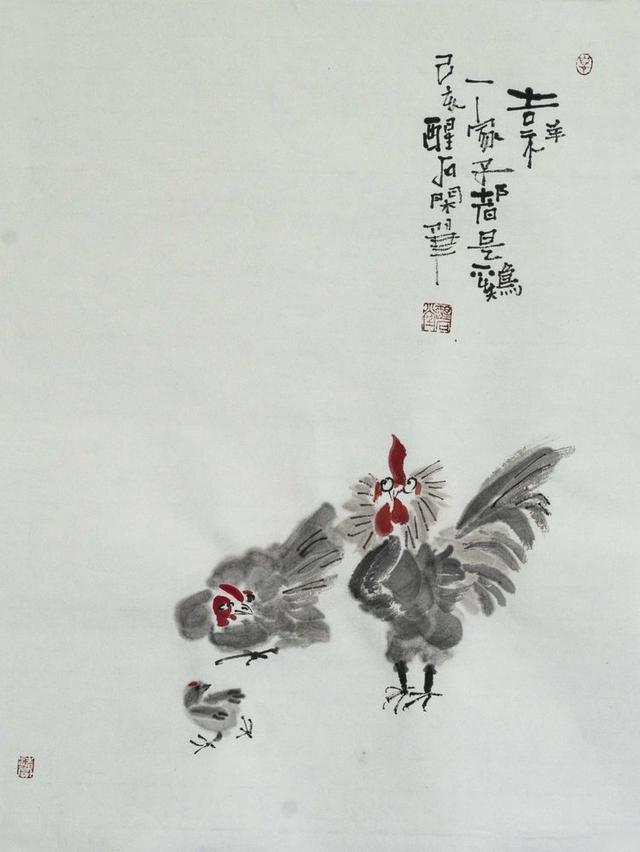 吉祥
一家子都是鷄
己亥醒石閑筆